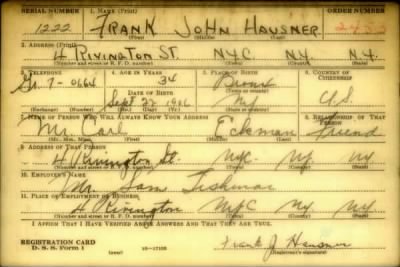 SERIAL NUMBER 1. NAME (Print) ORDER NUMBER
1222 FRANK JOHN HAUSNER
(First) (Middle) (Last)
2. ADDRESS (Print)
4 RIVINGTON ST. N.Y.C. N.Y. N.Y.
(Number and street or R. F. D. number) (Town) (County) (State)
3. TELEPHONE 4. AGE IN YEARS 5. PLACE OF BIRTH 6. COUNTRY OF CITIZENSHIP
34 Bronx
Gr. 7-0664 DATE OF BIRTH (Town or county)
Sept 22 1906 N.Y. U.S.
(Exchange) (Number) (Mo.) (Day) (Yr.) (State or country)
7. NAME OF PERSON WHO WILL ALWAYS KNOW YOUR ADDRESS 8. RELATIONSHIP OF THAT PERSON
Mr. Carl Eckman Friend
(Mr., Mrs., Miss) (First) (Middle) (Last)
9. ADDRESS OF THAT PERSON
4 Rivington St. NYC. NY. NY
(Number and street or R. F. D. number) (Town) (County) (State)
10. EMPLOYER'S NAME
Mr. Sam
11. PLACE OF EMPLOYMENT OR BUSINESS
4 Rivington NYC NY NY
(Number and street or R. F. D. number) (Town) (County) (State)
I AFFIRM THAT I HAVE VERIFIED ABOVE ANSWERS AND THAT THEY ARE TRUE.
REGISTRATION CARD
D. S. S. Form 1 (over) 16-17105 Frank J Hausner
(Registrant's signature)